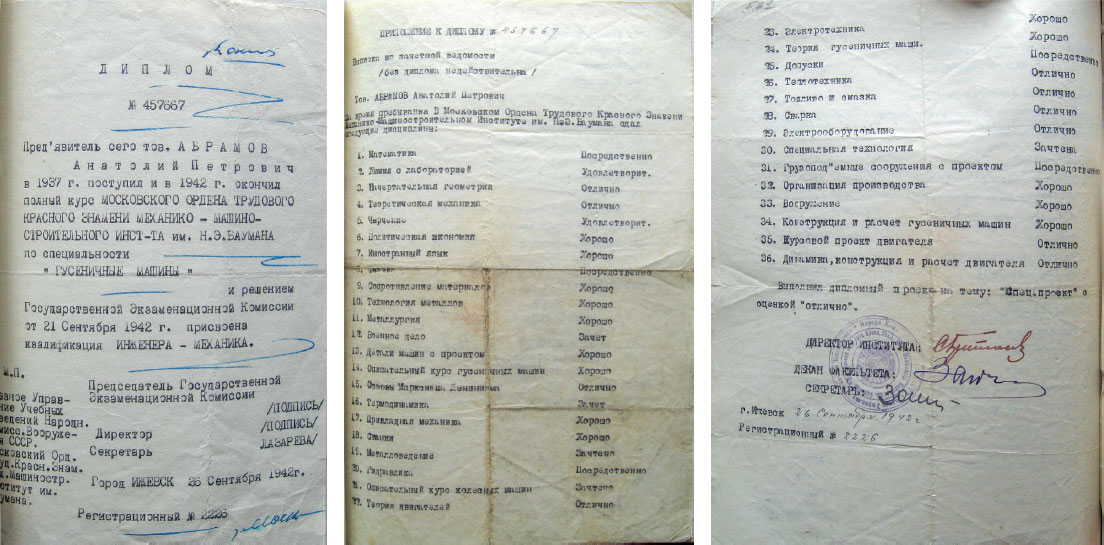 Копия
ДИПЛОМ
№ 457667
Пред'явитель сего тов. АБРАМОВ
Анатолий Петрович
в 1937 г. поступил и в 1942 г. окончил
полный курс МОСКОВСКОГО ОРДЕНА ТРУДОВОГО
КРАСНОГО ЗНАМЕНИ МЕХАНИКО – МАШИНО-
СТРОИТЕЛЬНОГО ИНСТ-ТА им. Н.Э.БАУМАНА
по специальности
" ГУСЕНИЧНЫЕ МАШИНЫ "
и решением
Государственной Экзаменационной Комиссии
от 21 Сентября 1942 г. присвоена
квалификация ИНЖЕНЕРА – МЕХАНИКА.
М.П.
Председатель Государственной
авное Управ- Экзаменационной Комиссии
ние Учебных /ПОДПИСЬ/
ведений Народн.
мисс.Вооруже- Директор /ПОДПИСЬ/
я СССР. Секретарь ЛАЗАРЕВА/
осковский Орд.
уд.Красн.Знам.
х.Машиностр. Город ИЖЕВСК 26 Сентября 1942г.
ститут им.
умана.
Регистрационный № 2226
ПРИЛОЖЕНИЕ К ДИПЛОМУ № 457667
Выписка из зачетной ведомости
/без диплома недействительна/
Тов. АБРАМОВ Анатолий Петрович
За время пребывания В Московском Ордена Трудового Красного Знамени
Механико-Машиностроительном Институте им. Н.Э.Баумана сдал
следующие дисциплины:
1. Математика Посредственно
2. Химия с лабораторией Удовлетворит.
3. Начертательная геометрия Отлично
4. Теоретическая механика Отлично
5. Черчение Удовлетворит.
6. Политическая экономия Хорошо
7. Иностранный язык Хорошо
8. Физика Посредственно
9. Сопротивление материалов Хорошо
10. Технология металлов Хорошо
11. Металлургия Хорошо
12. Военное дело Зачет
13. Детали машин с проектом Хорошо
14. Описательный курс гусеничных машин Хорошо
15. Основы Марксизма Ленинизма Отлично
16. Термодинамика Зачет
17. Прикладная механика Хорошо
18. Станки Хорошо
19. Металловедение Зачтено
20. Гидравлика Посредственно
21. Описательный курс колесных машин Зачтено
22. Теория двигателей Отлично
23. Электротехника Хорошо
24. Теория гусеничных маши. Хорошо
25. Допуски Посредственн
26. Теплотехника Отлично
27. Топливо и смазка Отлично
28. Сварка Отлично
29. Электрооборудование Отлично
30. Специальная технология Зачтена
31. Грузопод"емные сооружения с проектом Посредственно
32. Организация производства Хорошо
33. Вооружение Хорошо
34. Конструкция и расчет гусеничных машин Хорошо
35. Курсовой проект двигателя Отлично
36. Динамика,конструкция и расчет двигателя Отлично
Выполнил дипломный проект на тему: "Спец.проект" с
оценкой "отлично".
ДИРЕКТОР ИНСТИТУТА:
ДЕКАН ФАКУЛЬТЕТА:
СЕКРЕТАРЬ:
г.Ижевск 26 Сентября 1942г
Регистрационный № 2226